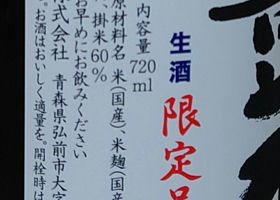 生酒
限定品
内容量 720ml
原材料名 米(国産)、米麹(国産
掛米60%
お早めにお飲みください
株式会社 青森県弘前市大字
。お酒はおいしく適量を。開栓時は